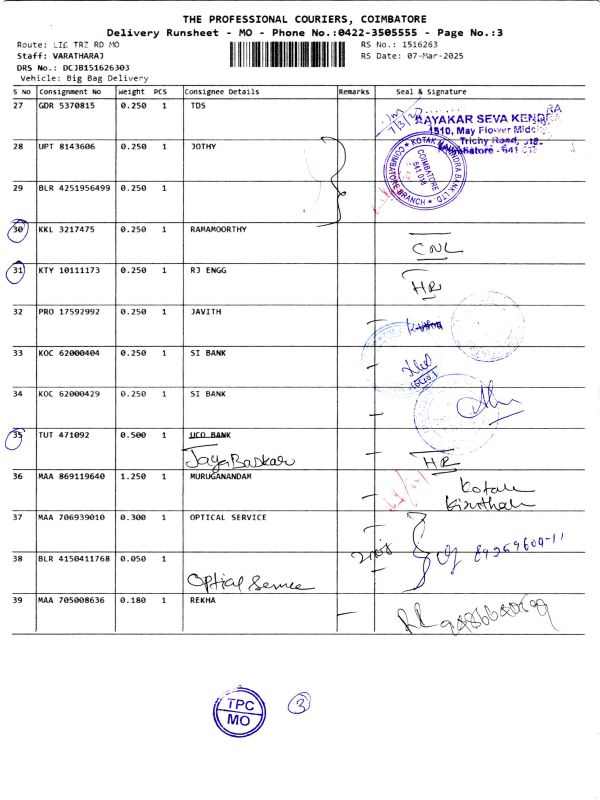 THE PROFESSIONAL COURIERS, COIMBATORE
Delivery Runsheet - MO - Phone No.:0422-3505555 - Page No.:3
Route: LIC TRZ RD MO RS No.: 1516263
Staff: VARATHARAJ RS Date: 07-Mar-2025
DRS No.: DCJB151626303
Vehicle: Big Bag Delivery
S No Consignment No Weight PCS Consignee Details Remarks Seal & Signature
27 GDR 5370815 0.250 1 TDS
7/3/25
1510, May Flower
Trichy Road,
28 UPT 8143606 0.250 1 JOTHY
KOTAK MAHINDRA BANK LTD.
COIMBATORE BRANCH
COIMBATORE
641 018
29 BLR 4251956499 0.250 1
30 KKL 3217475 0.250 1 RAMAMOORTHY
CNL
31 KTY 10111173 0.250 1 RJ ENGG
HR
32 PRO 17592992 0.250 1 JAVITH
33 KOC 62000404 0.250 1 SI BANK
34 KOC 62000429 0.250 1 SI BANK
35 TUT 471092 0.500 1 UCO BANK
JayaBaskar HR
36 MAA 869119640 1.250 1 MURUGANANDAM
Kotak
37 MAA 706939010 0.300 1 OPTICAL SERVICE
38 BLR 4150411768 0.050 1
Optical Service
39 MAA 705008636 0.180 1 REKHA
TPC
MO
3